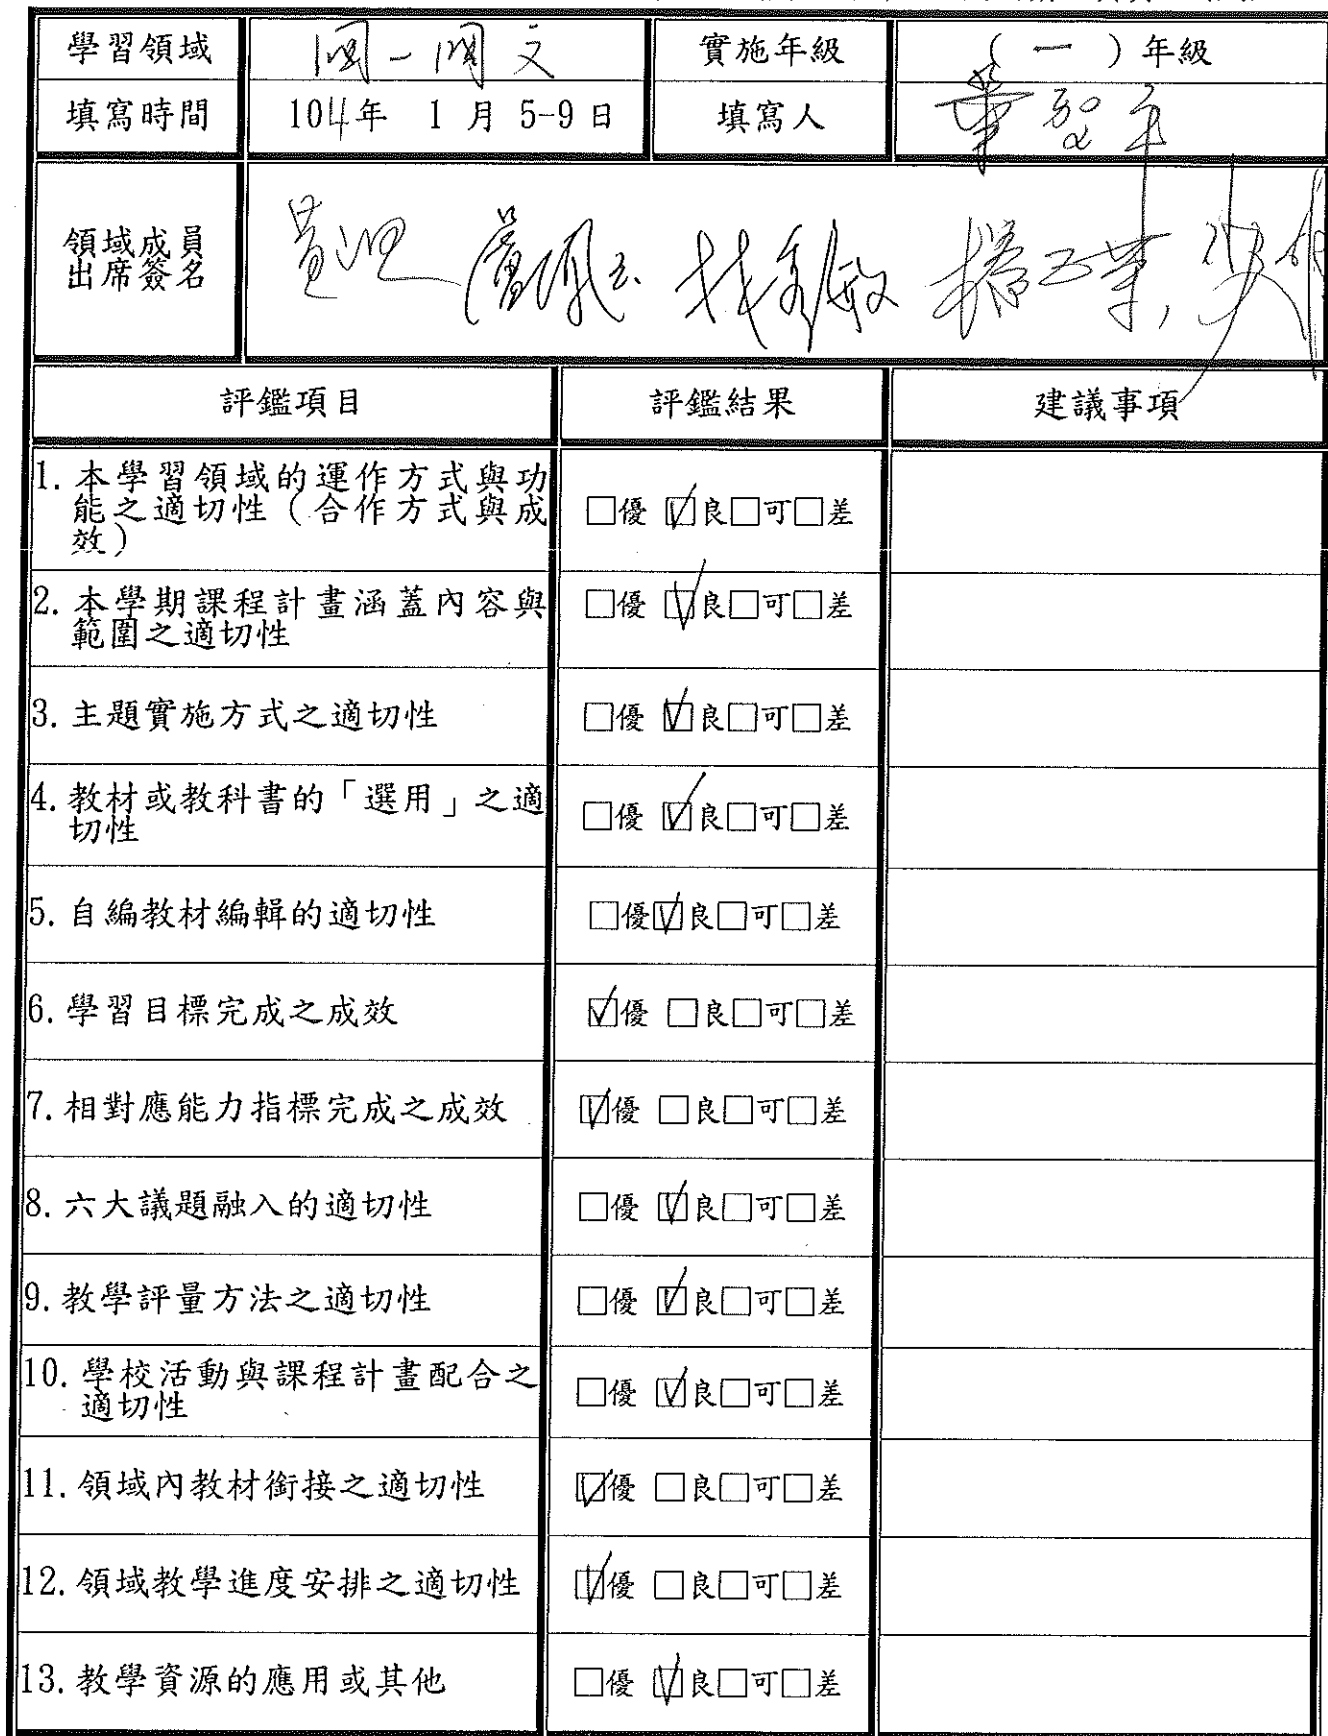 學習領域 國一國文 實施年級 ( 一 ) 年級
填寫時間 104年 1 月 5-9 日 填寫人
領域成員
出席簽名
評鑑項目 評鑑結果 建議事項
1. 本學習領域的運作方式與功
能之適切性（合作方式與成
效） □優 ☑良□可□差
2. 本學期課程計畫涵蓋內容與
範圍之適切性 □優 ☑良□可□差
3. 主題實施方式之適切性 □優 ☑良□可□差
4. 教材或教科書的「選用」之適
切性 □優 ☑良□可□差
5. 自編教材編輯的適切性 □優☑良□可□差
6. 學習目標完成之成效 ☑優 □良□可□差
7. 相對應能力指標完成之成效 ☑優 □良□可□差
8. 六大議題融入的適切性 □優 ☑良□可□差
9. 教學評量方法之適切性 □優 ☑良□可□差
10. 學校活動與課程計畫配合之
適切性 □優 ☑良□可□差
11. 領域內教材銜接之適切性 ☑優 □良□可□差
12. 領域教學進度安排之適切性 ☑優 □良□可□差
13. 教學資源的應用或其他 □優 ☑良□可□差